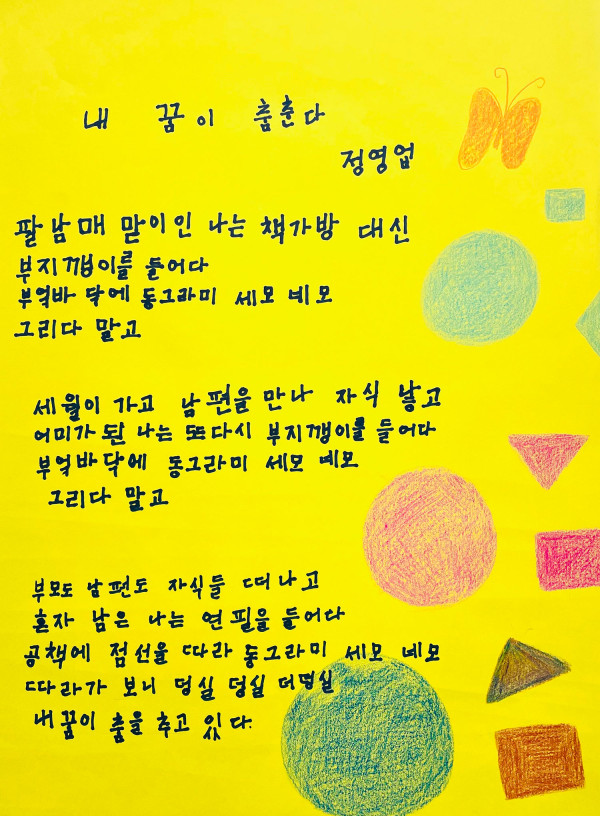 내 꿈이 춤춘다
정영업
팔남매 맏이인 나는 책가방 대신
부지깽이를 들어다
부엌바닥에 동그라미 세모 네모
그리다 말고
세월이 가고 남편을 만나 자식 낳고
어미가 된 나는 또다시 부지깽이를 들어다
부엌바닥에 동그라미 세모 네모
그리다 말고
부모도 남편도 자식들 떠나고
혼자 남은 나는 연필을 들어다
공책에 점선을 따라 동그라미 세모 네모
따라가 보니 덩실 덩실 더덩실
내 꿈이 춤을 추고 있다.